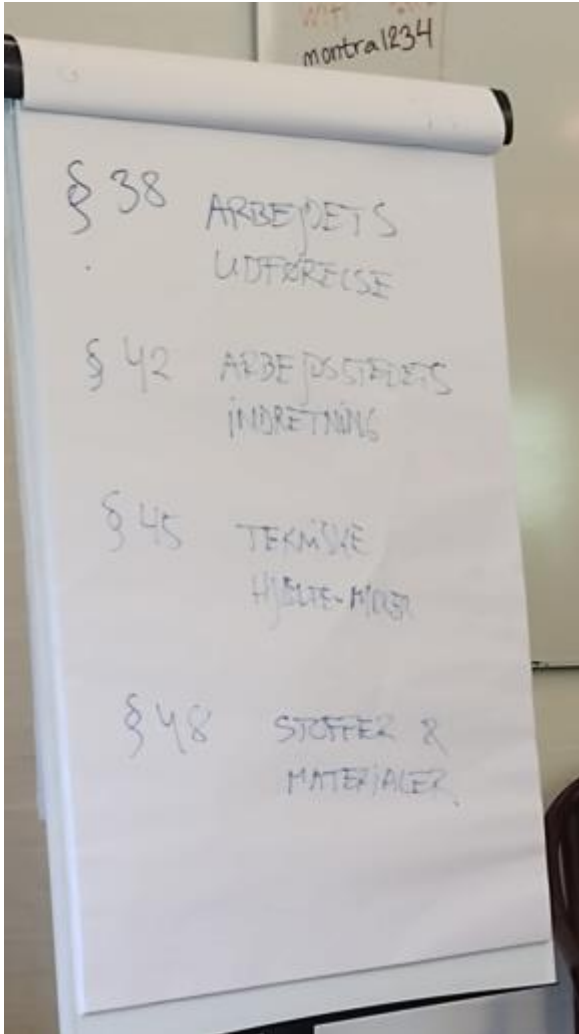 WiFi
montra1234
§ 38 ARBEJDETS
UDFØRELSE
§ 42 ARBEJDSSTEDETS
INDRETNING
§ 45 TEKNISKE
HJÆLPE-MIDLER
§ 48 STOFFER &
MATERIALER